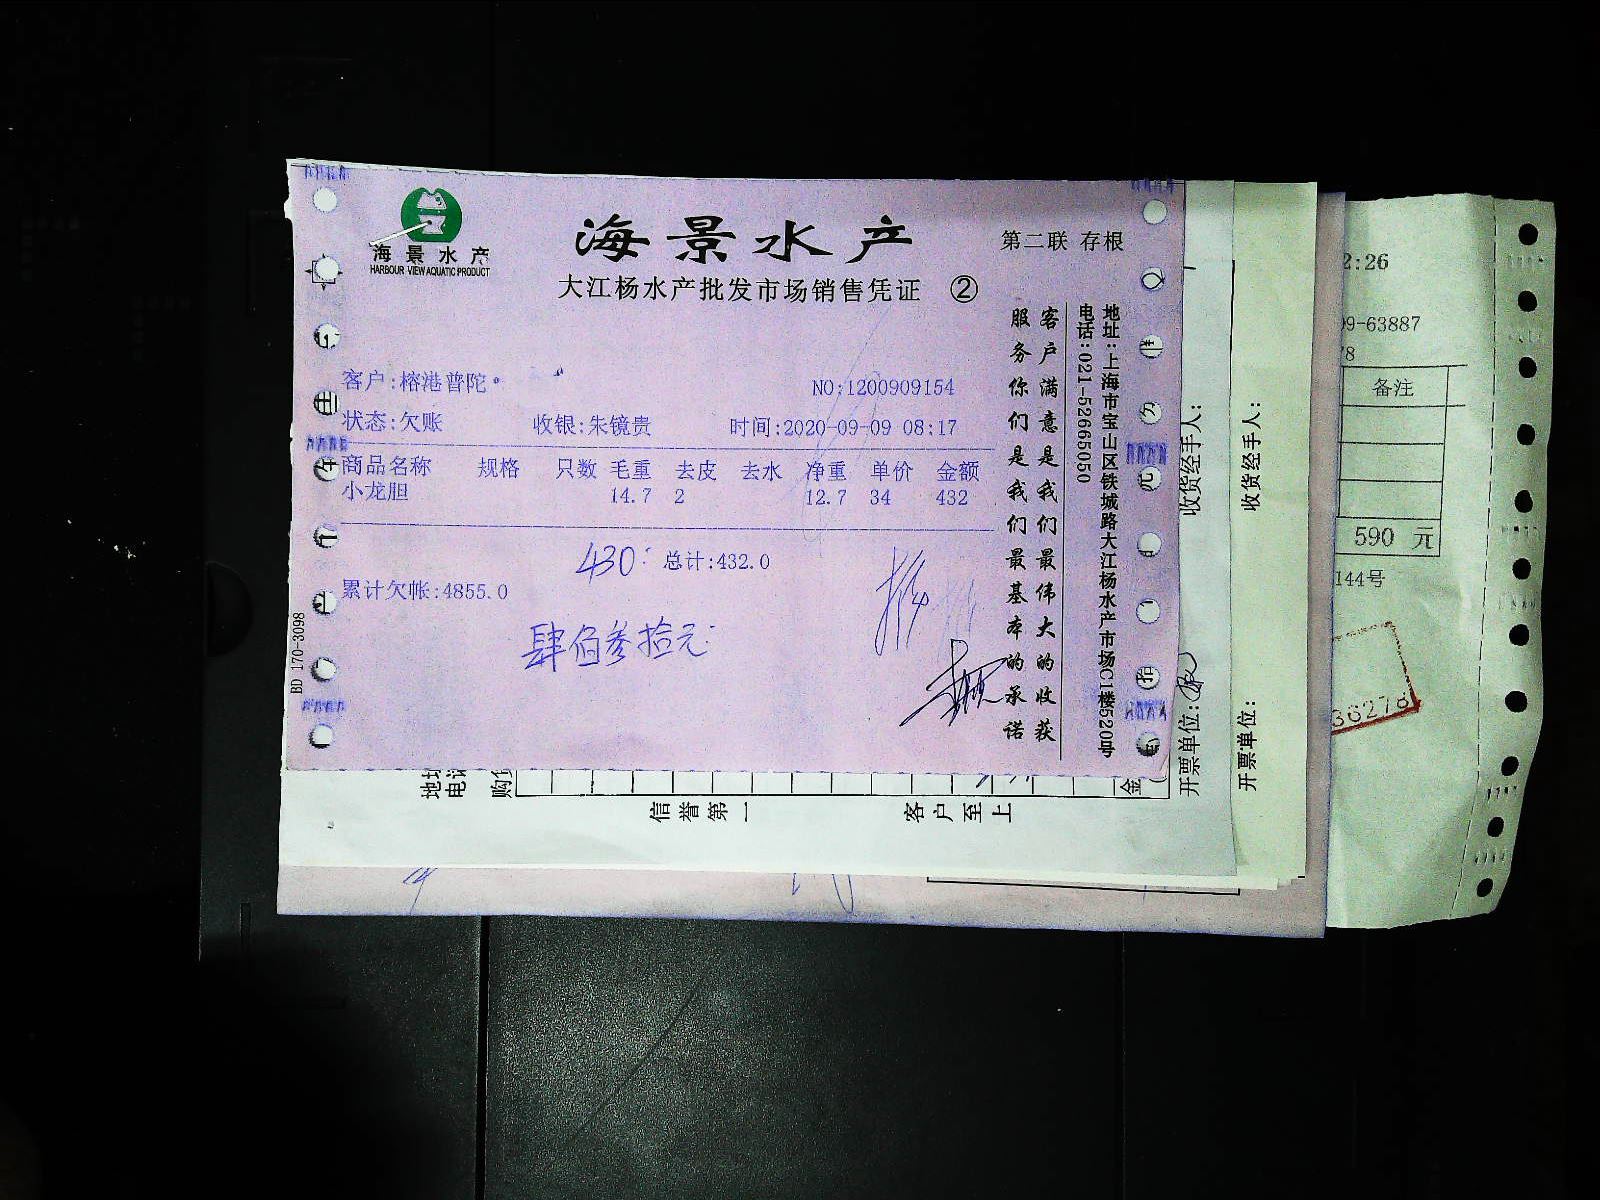 海景水产
HARBOUR VIEW AQUATIC PRODUCT
海景水产
第二联 存根
大江杨水产批发市场销售凭证 ②
客户:榕港普陀
NO:1200909154
状态:欠账 收银:朱镜贵 时间:2020-09-09 08:17
商品名称 规格 只数 毛重 去皮 去水 净重 单价 金额
小龙胆 14.7 2 12.7 34 432
430 总计:432.0
累计欠帐:4855.0
肆佰叁拾元
BD 170-3098
客户满意是我们最伟大的收获
服务你们是我们最基本的承诺
地址:上海市宝山区铁城路大江杨水产市场C1楼520号
电话:021-52665050
收货经手人:
开票单位:
收货经手人:
开票单位:
地址
电话
购货
金
信誉第一
客户至上
2:26
99-63887
78
备注
590 元
144号
36278